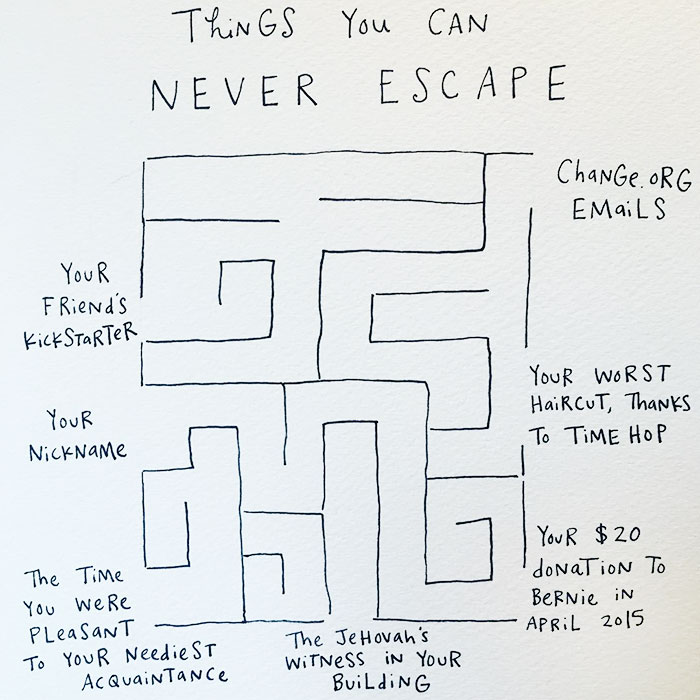 THiNGS YOU CAN
NEVER ESCAPE
ChaNGe.ORG
EMaiLS
YOUR
FRieND'S
KiCKSTaRTeR
YOUR WORST
HaiRCUT, ThaNKS
TO TiMe HOP
YOUR
NiCKNaMe
YOUR $20
doNaTioN To
BeRNie iN
APRiL 2015
The TiMe
YOU WeRe
PLeaSaNT
To YOUR NeedieST
ACQUaiNTaNCe
The JeHOVah's
WiTNeSS iN YOUR
BUiLdiNG